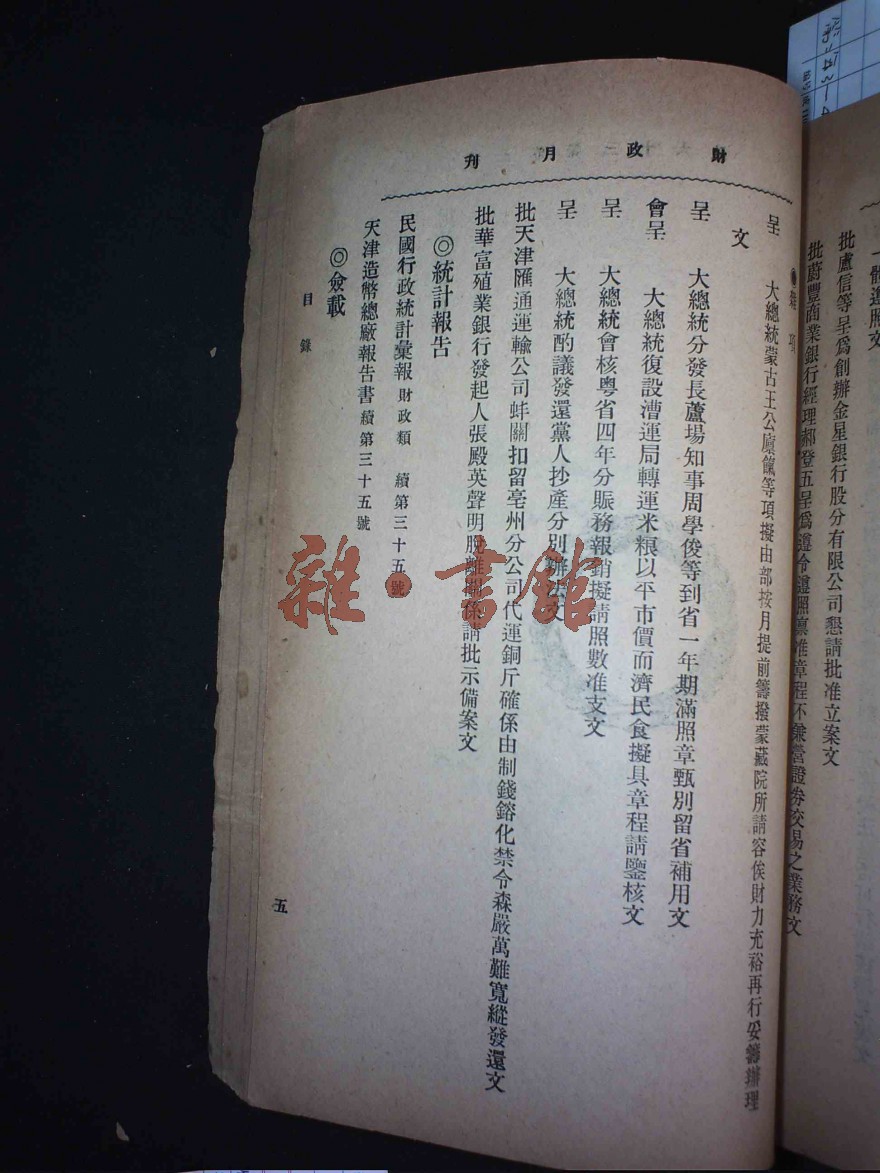 一體遵照文
批盧信等呈爲創辦金星銀行股分有限公司懇請批准立案文
批蔚豐商業銀行經理郝登五呈爲遵令遵照稟准章程不兼營證券交易之業務文
財政月刊
◉雜項
呈 大總統蒙古王公廩餼等項擬由部按月提前籌撥蒙藏院所請容俟財力充裕再行妥籌辦理
文
呈 大總統分發長蘆場知事周學俊等到省一年期滿照章甄別留省補用文
會呈 大總統復設漕運局轉運米粮以平市價而濟民食擬具章程請鑒核文
呈 大總統會核粤省四年分賑務報銷擬請照數准支文
呈 大總統酌議發還黨人抄產分別辦法文
批天津匯通運輸公司蚌關扣留亳州分公司代運銅斤確係由制錢鎔化禁令森嚴萬難寬縱發還文
批華富殖業銀行發起人張殿英聲明脫離關係請批示備案文
◎統計報告
民國行政統計彙報財政類 續第三十五號
天津造幣總廠報告書續第三十五號
◎僉載
目錄
五
雜·書館